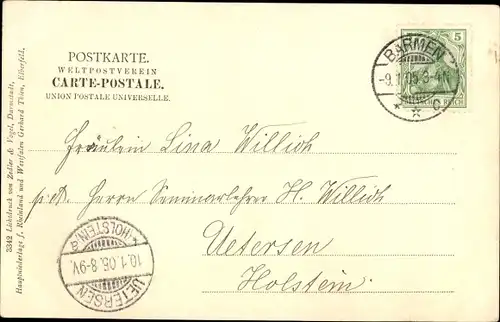 POSTKARTE.
WELTPOSTVEREIN
CARTE-POSTALE.
UNION POSTALE UNIVERSELLE.
5
DEUTSCHES REICH
BARMEN
-9.1.05.3-4N.
* * * c
Fräulein Lina Willich
p. Adr. Herrn Seminarlehrer H. Willich
Uetersen
Holstein.
UETERSEN
10.1.05.8-9V.
*(HOLSTEIN) a
3342 Lichtdruck von Zedler & Vogel, Darmstadt,
Hauptniederlage f. Rheinland und Westfalen Gerhard Thien, Elberfeld.